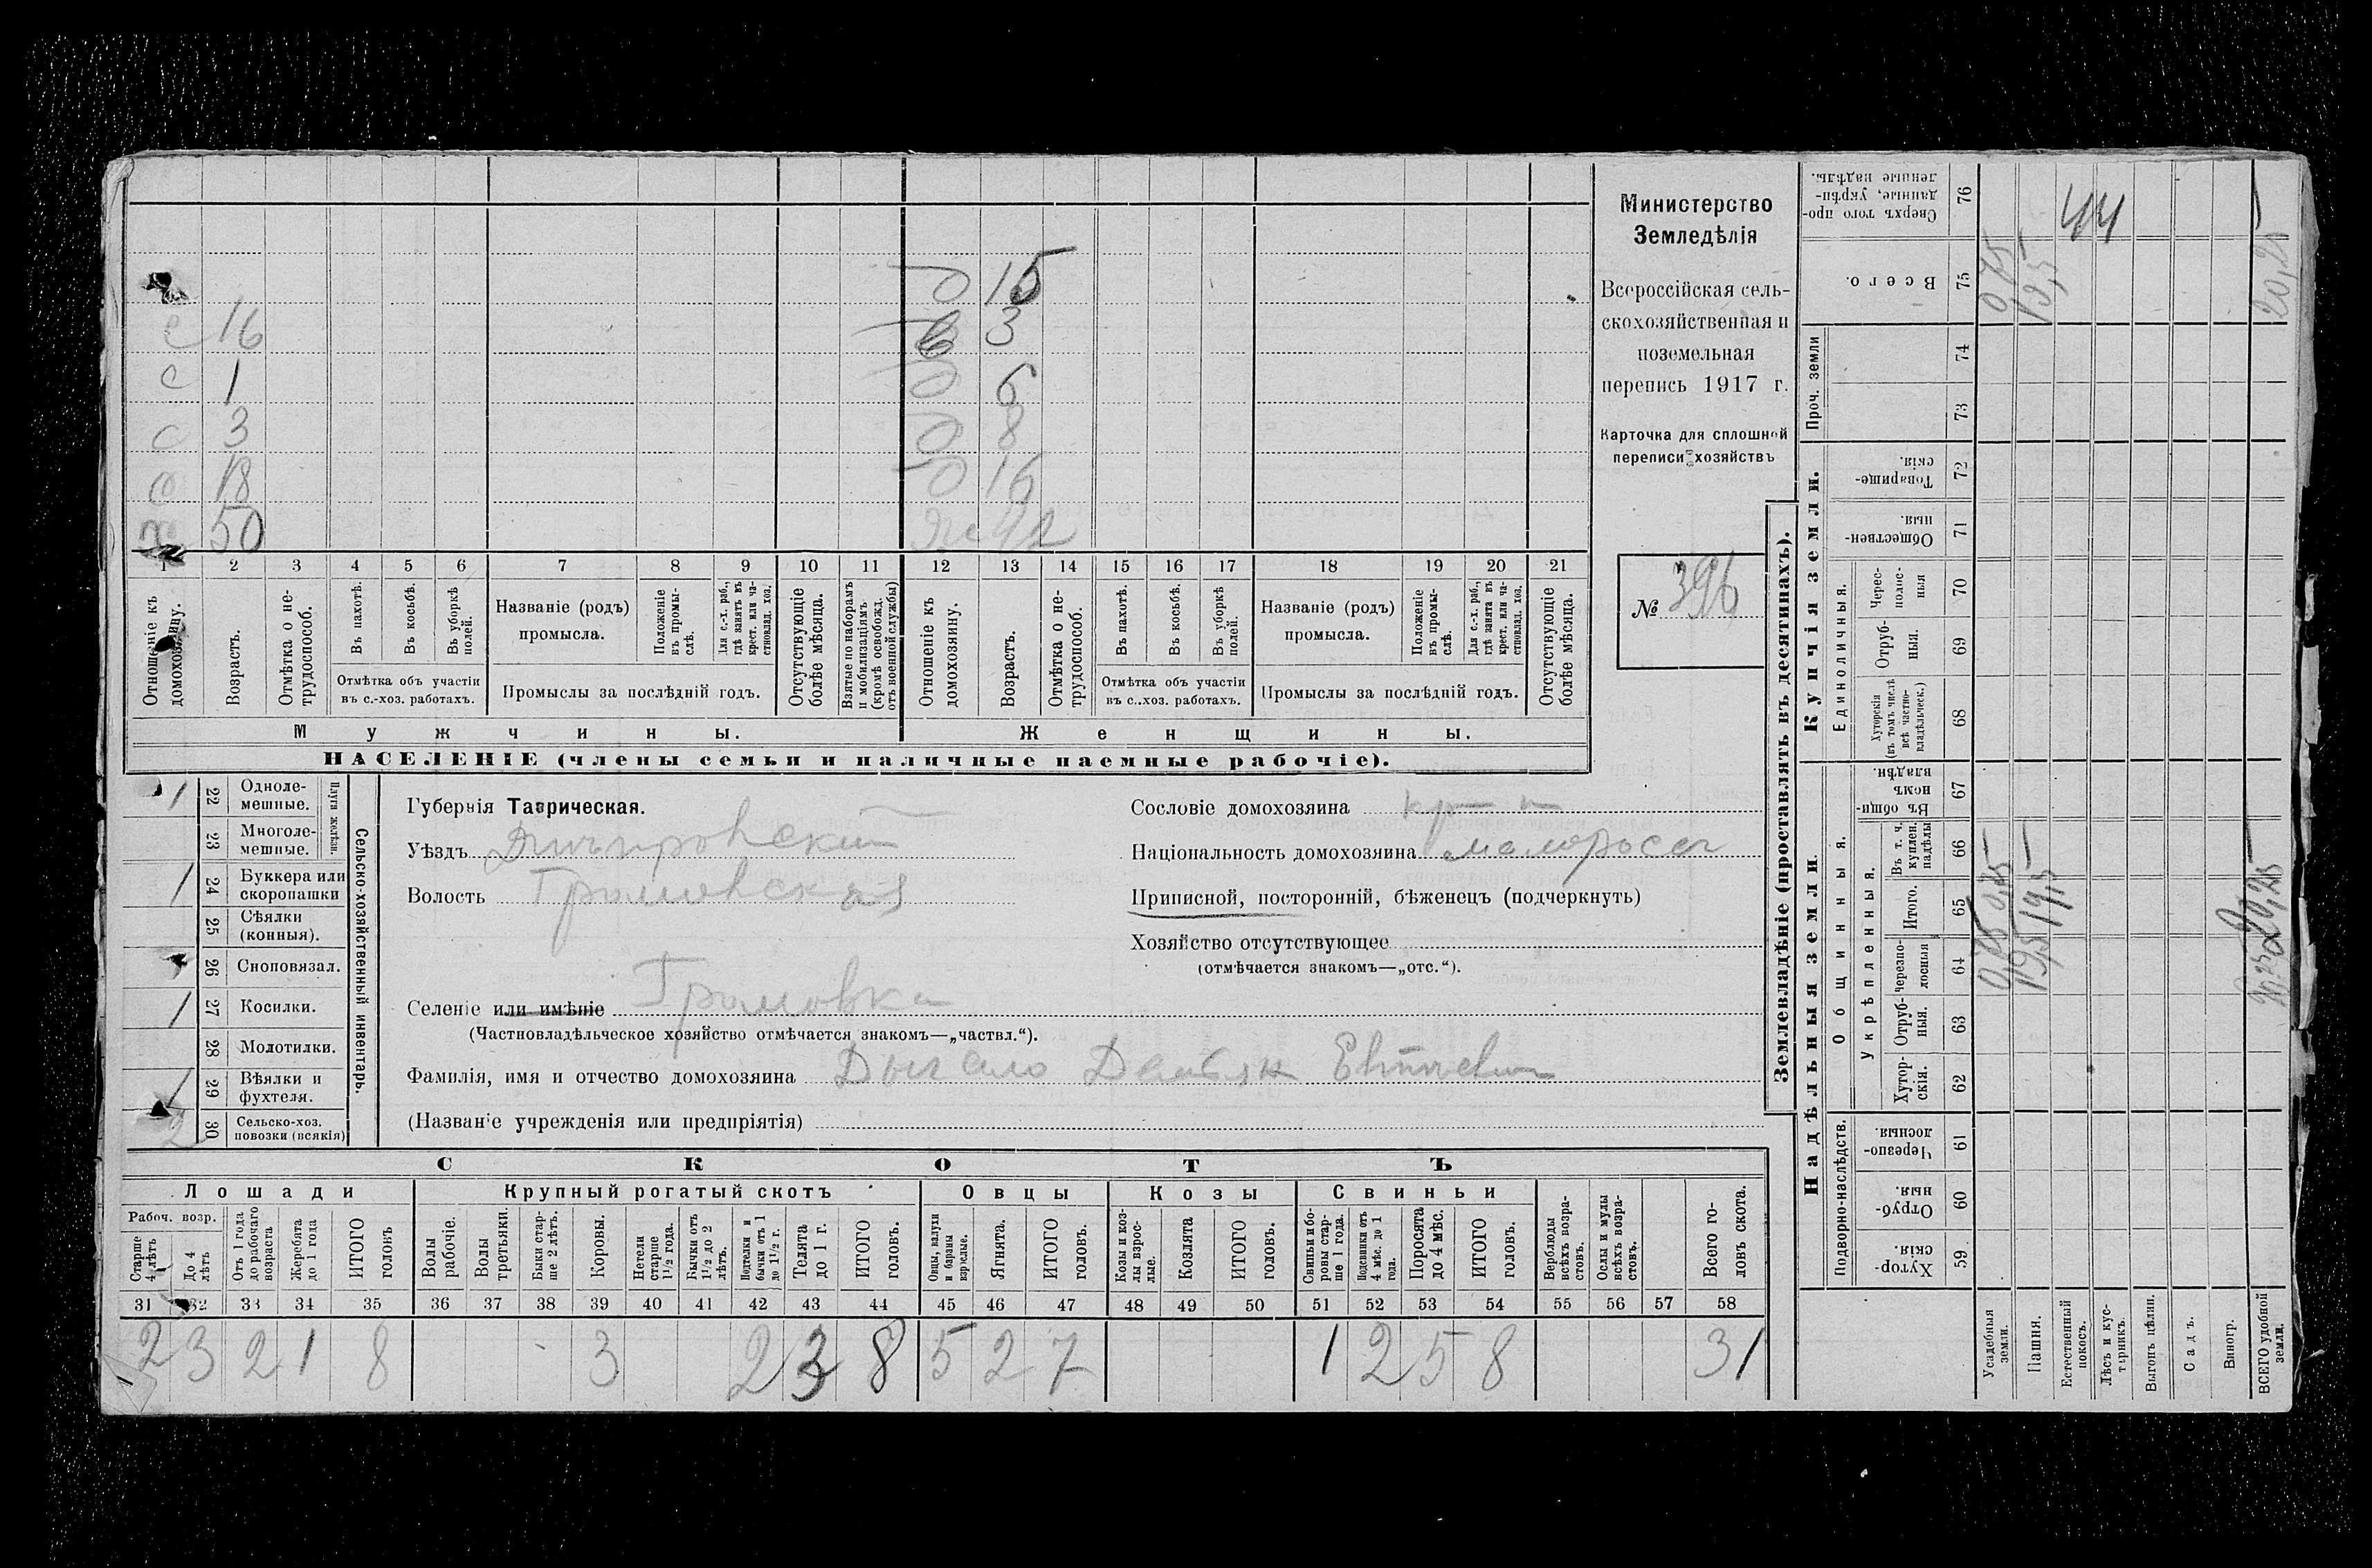 15
с 16 3
с 1 6
с 3 8
18 16
х 50
1 2 3 4 5 6 7 8 9 10 11 12 13 14 15 16 17 18 19 20 21
Отношеніе къ домохозяину.
Возрастъ.
Отмѣтка о не-трудоспособ.
Въ пахотѣ.
Въ косьбѣ.
Въ уборкѣ полей.
Отмѣтка объ участіи въ с.-хоз. работахъ.
Названіе (родъ) промысла.
Положеніе въ промы-слѣ.
Для с.-х. раб., гдѣ занятъ въ крест. или ча-стновлад. хоз.
Промыслы за послѣдній годъ.
Отсутствующіе болѣе мѣсяца.
Взятые по наборамъ и мобилизаціямъ (кромѣ освобожд. отъ военной службы)
Отношеніе къ домохозяину.
Возрастъ.
Отмѣтка о не-трудоспособ.
Въ пахотѣ.
Въ косьбѣ.
Въ уборкѣ полей.
Отмѣтка объ участіи въ с..хоз. работахъ.
Названіе (родъ) промысла.
Положеніе въ промы-слѣ.
Для с.-х. раб., гдѣ занята въ крест. или ча-стновлад. хоз.
Промыслы за послѣдній годъ.
Отсутствующіе болѣе мѣсяца.
Мужчины. Женщины.
НАСЕЛЕНІЕ (члены семьи и наличные наемные рабочіе).
Министерство
Земледѣлія
Всероссійская сель-
скохозяйственная и
поземельная
перепись 1917 г.
Карточка для сплошной
переписи хозяйствъ
№ 396
Сельско-хозяйственный инвентарь.
Плуги желѣзн.
1 22 Одноле-мешные.
23 Многоле-мешные.
1 24 Буккера или скоропашки
25 Сѣялки (конныя).
26 Сноповязал.
1 27 Косилки.
28 Молотилки.
1 29 Вѣялки и фухтеля.
2 30 Сельско-хоз. повозки (всякія)
Губернія Таврическая.
Уѣздъ Днѣпровский
Волость Громовская
Селеніе или имѣніе Громовка
(Частновладѣльческое хозяйство отмѣчается знакомъ—„частвл.“).
Фамилія, имя и отчество домохозяина Дыгало Демьян
(Названіе учрежденія или предпріятія)
Сословіе домохозяина кр-н
Національность домохозяина малоросс
Приписной, посторонній, бѣженецъ (подчеркнуть)
Хозяйство отсутствующее
(отмѣчается знакомъ—„отс.“).
СКОТЪ
Лошади Крупный рогатый скотъ Овцы Козы Свиньи
Рабоч. возр.
Старше 4 лѣтъ
До 4 лѣтъ
Отъ 1 года до рабочаго возраста
Жеребята до 1 года
ИТОГО головъ
Волы рабочіе.
Волы третьяки.
Быки стар-ше 2 лѣтъ.
Коровы.
Нетели старше 1½ года.
Бычки отъ 1½ до 2 лѣтъ.
Подтелки и бычки отъ 1 до 1½ г.
Телята до 1 г.
ИТОГО головъ.
Овцы, валухи и бараны взрослые.
Ягнята.
ИТОГО головъ.
Козы и коз-лы взрос-лые.
Козлята
ИТОГО головъ.
Свиньи и бо-ровы стар-ше 1 года.
Подсвинки отъ 4 мѣс. до 1 года.
Поросята до 4 мѣс.
ИТОГО головъ.
Верблюды всѣхъ возра-стовъ.
Ослы и мулы всѣхъ возра-стовъ.
Всего го-ловъ скота.
31 32 33 34 35 36 37 38 39 40 41 42 43 44 45 46 47 48 49 50 51 52 53 54 55 56 57 58
2 3 2 1 8 3 2 3 8 5 2 7 1 2 5 8 31
Землевладѣніе (проставлять въ десятинахъ).
Надѣльныя земли. Купчія земли. Проч. земли
Подворно-наслѣдств.
Общинныя.
Укрѣпленныя.
Единоличныя.
Хутор-скія. 59
Отруб-ныя. 60
Черезпо-лосныя. 61
Хутор-скія. 62
Отруб-ныя. 63
Черезпо-лосныя 64
Итого. 65
Въ т. ч. куплен. надѣлы 66
Въ общи-номъ владѣн. 67
Хуторскія (въ томъ числѣ всѣ частно-владѣльческ.) 68
Отруб-ныя. 69
Черес-полос-ныя 70
Обществен-ныя. 71
Товарище-скія. 72
73
74
Всего. 75
Сверхъ того про-данные, укрѣп-ленные надѣлы. 76
Усадебныя земли. 0,75
Пашня. 19,5 19,5 19,5
Естественный покосъ.
Лѣсъ и кус-тарникъ.
Выгонъ цѣлин.
Садъ.
Виногр.
ВСЕГО удобной земли. 20,25 20,25
44